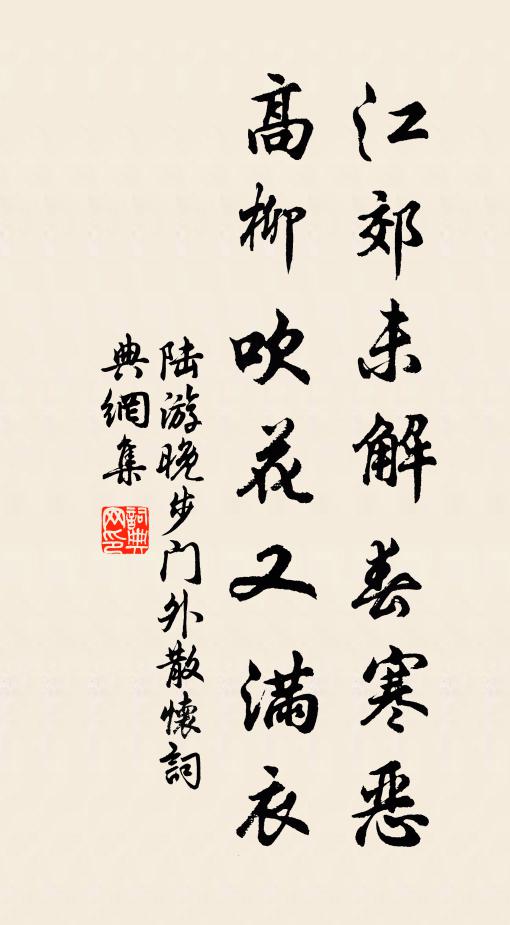 江郊未解春寒恶
高柳吹花又满衣
陆游晚步门外散懷詞
典網集
詞典网印